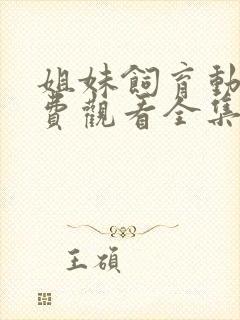 姐妹飼育動
費觀看全集
王碩